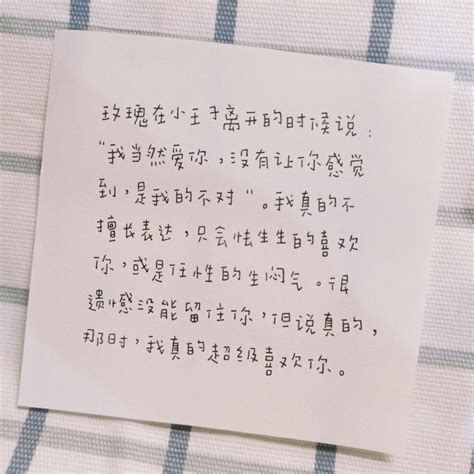 玫瑰在小王子离开的时候说：
“我当然爱你，没有让你感觉
到，是我的不对”。我真的不
擅长表达，只会怯生生的喜欢
你，或是任性的生闷气。很
遗憾没能留住你，但说真的，
那时，我真的超级喜欢你。